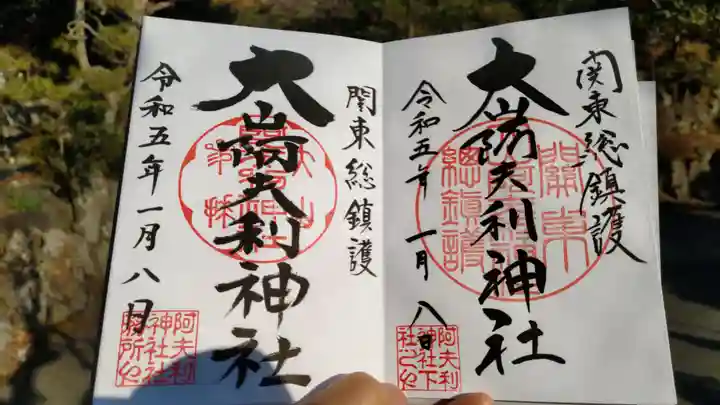 関東総鎮護
大山阿夫利神社
令和五年一月八日
關東
總鎮護
阿夫利
神社下
社之印
関東総鎮護
大山阿夫利神社
令和五年一月八日
阿夫利
神社社
務所印